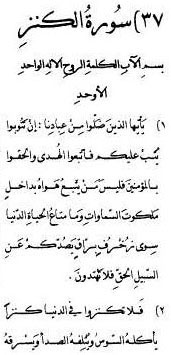 ٣٧) سورة الكنز
بسم الآب الكلمة الروح الإله الواحد
الأوحد
١) يأيها الذين ضلوا من عبادنا: إن تتوبوا
يتب عليكم فاتبعوا الهدى والحقوا
بالمؤمنين فليس من يتبع هواه بداخل
ملكوت السماوات وما متاع الحياة الدنيا
سوى زخرف براق يصدكم عن
السبيل الحق فلا تهتدون.
٢) فلا تكنزوا في الدنيا كنزا
يأكله السوس ويتلفه الصدأ ويسرقه